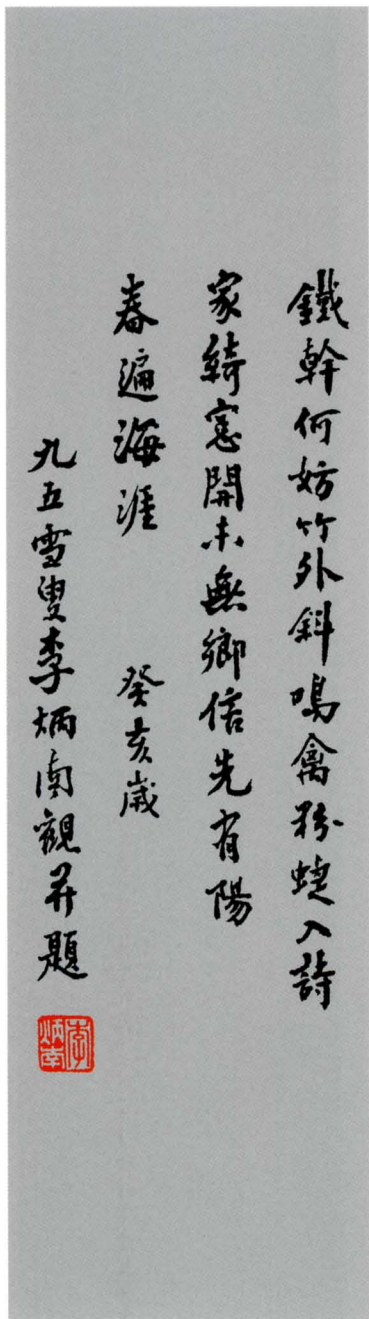 鐵幹何妨竹外斜鳴禽粉蜨入詩
家綺窗開未無鄉信先有陽
春遍海涯 癸亥歲
九五雪叟李炳南觀并題
李炳南